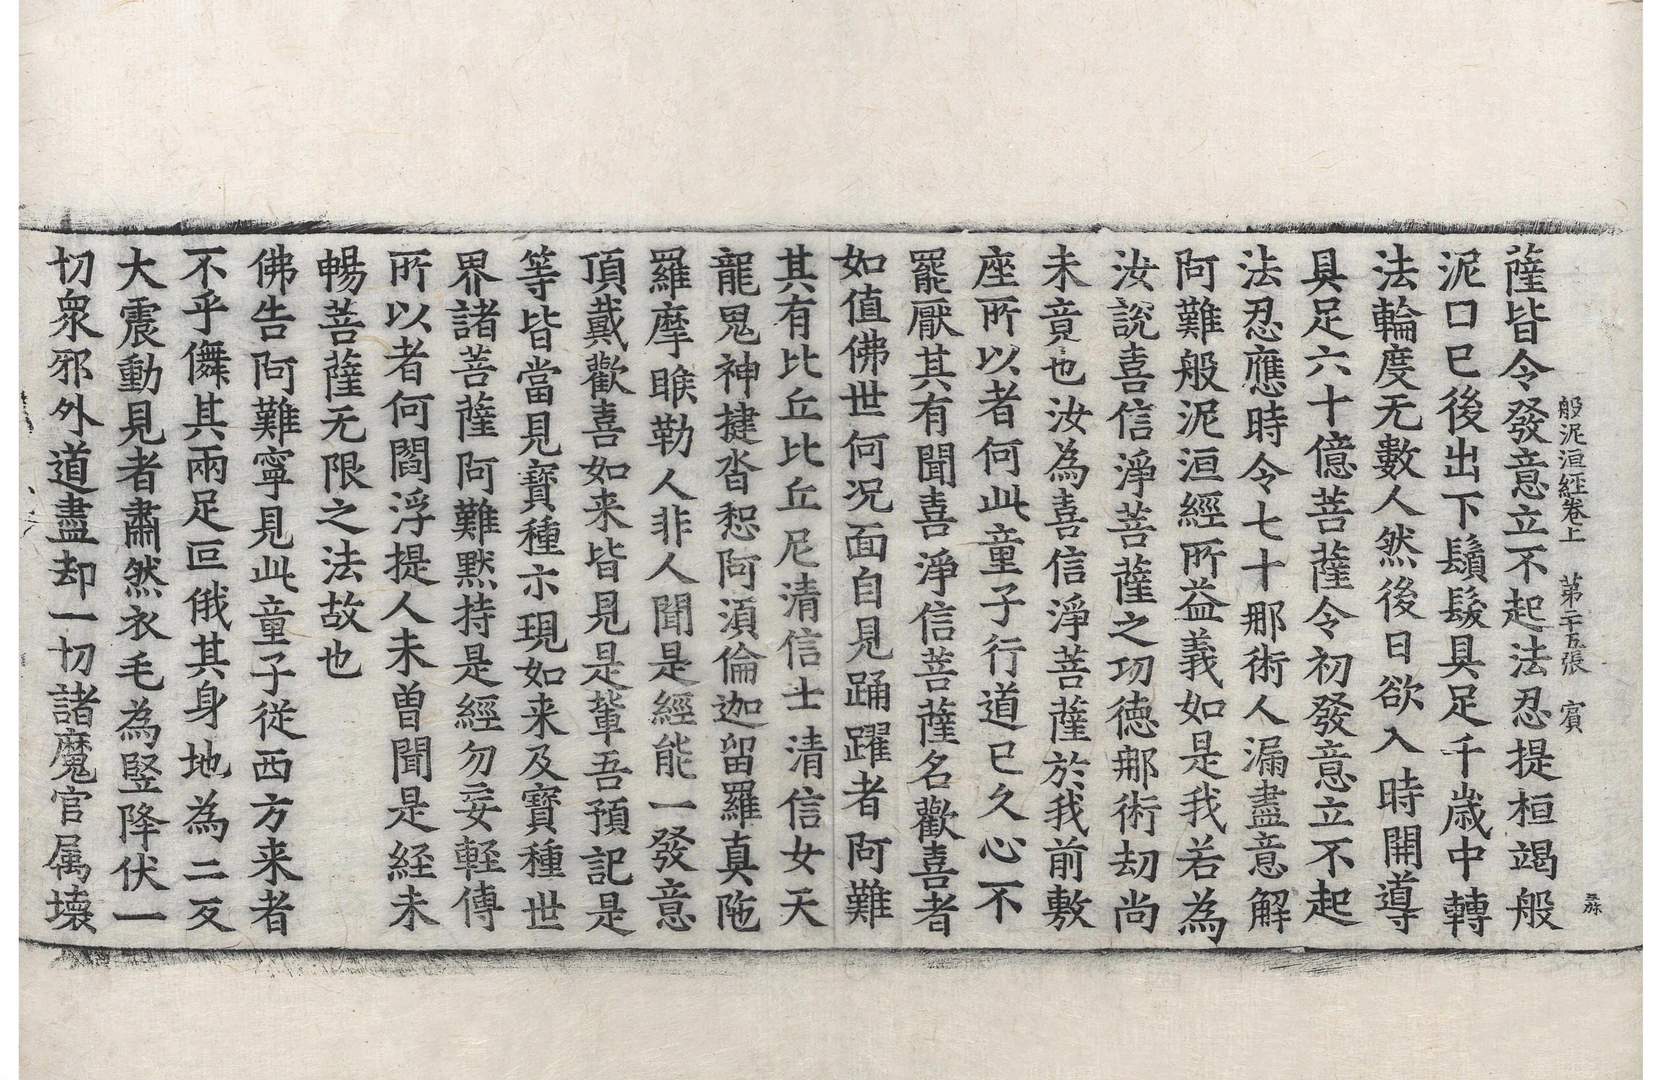 般泥洹經卷上　第二十五張　賓
薩皆令發意立不起法忍提桓竭般
泥曰已後出下鬚髮具足千歳中轉
法輪度无數人然後日欲入時開導
具足六十億菩薩令初發意立不起
法忍應時令七十那術人漏盡意解
阿難般泥洹經所益義如是我若為
汝說喜信淨菩薩之功德那術劫尚
未竟也汝為喜信淨菩薩於我前敷
座所以者何此童子行道已久心不
罷厭其有聞喜淨信菩薩名歡喜者
如值佛世何况面自見踊躍者阿難
其有比丘比丘尼清信士清信女天
龍鬼神揵沓惒阿湏倫迦留羅真陁
羅摩睺勒人非人聞是經能一發意
頂戴歡喜如来皆見是輩吾預記是
等皆當見寶種亦現如来及寶種世
界諸菩薩阿難黙持是經勿妄輕傳
所以者何閻浮提人未曽聞是經未
暢菩薩无限之法故也
佛告阿難寧見此童子從西方来者
不乎儛其兩足叵俄其身地為二反
大震動見者肅然衣毛為竪降伏一
切衆邪外道盡却一切諸魔官属壊